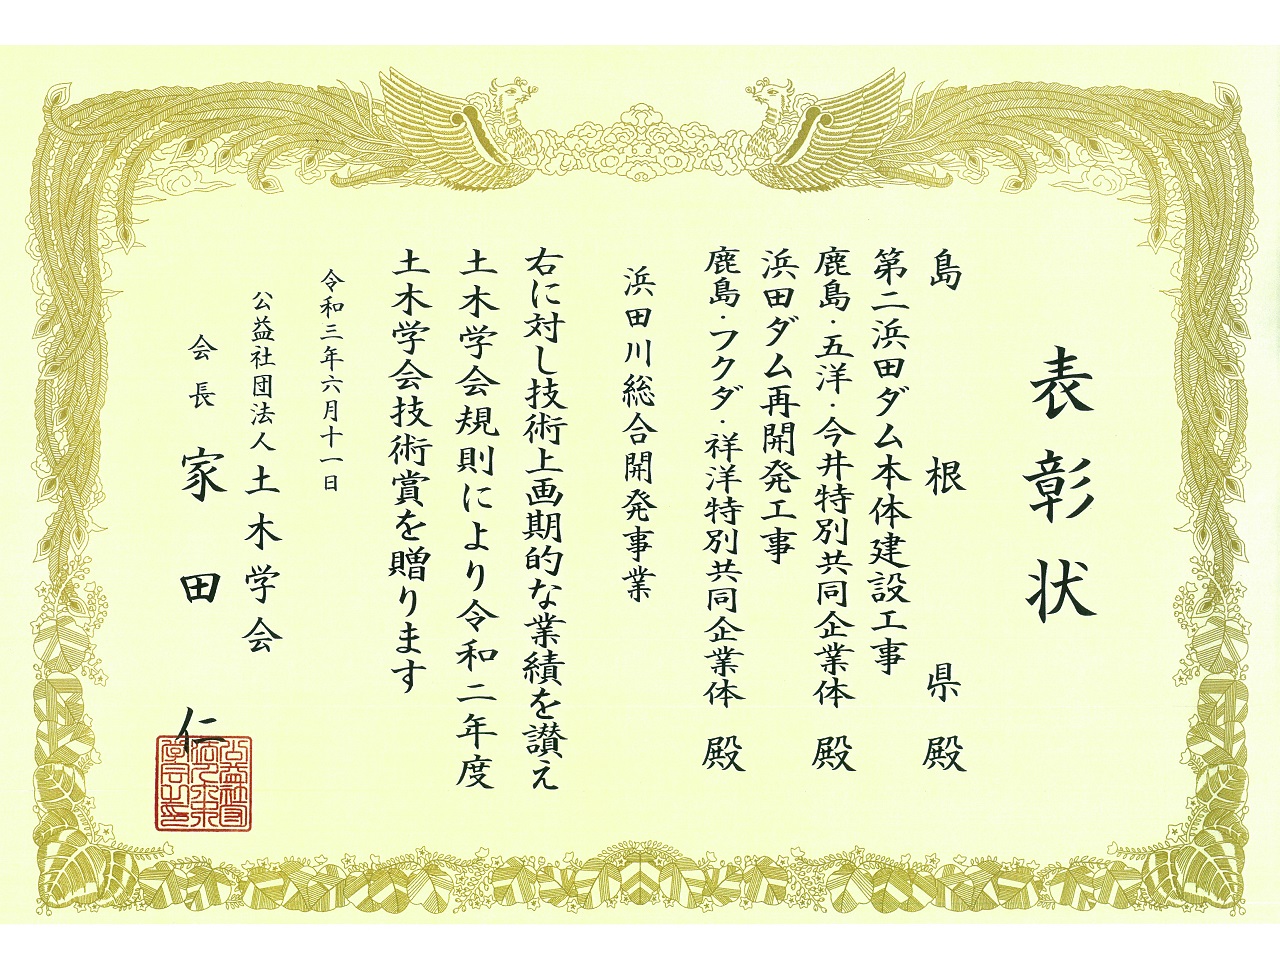 表彰状
島根県 殿
第二浜田ダム本体建設工事
鹿島・五洋・今井特別共同企業体 殿
浜田ダム再開発工事
鹿島・フクダ・祥洋特別共同企業体 殿
浜田川総合開発事業
右に対し技術上画期的な業績を讃え
土木学会規則により令和二年度
土木学会技術賞を贈ります
令和三年六月十一日
公益社団法人 土木学会
会長 家田 仁